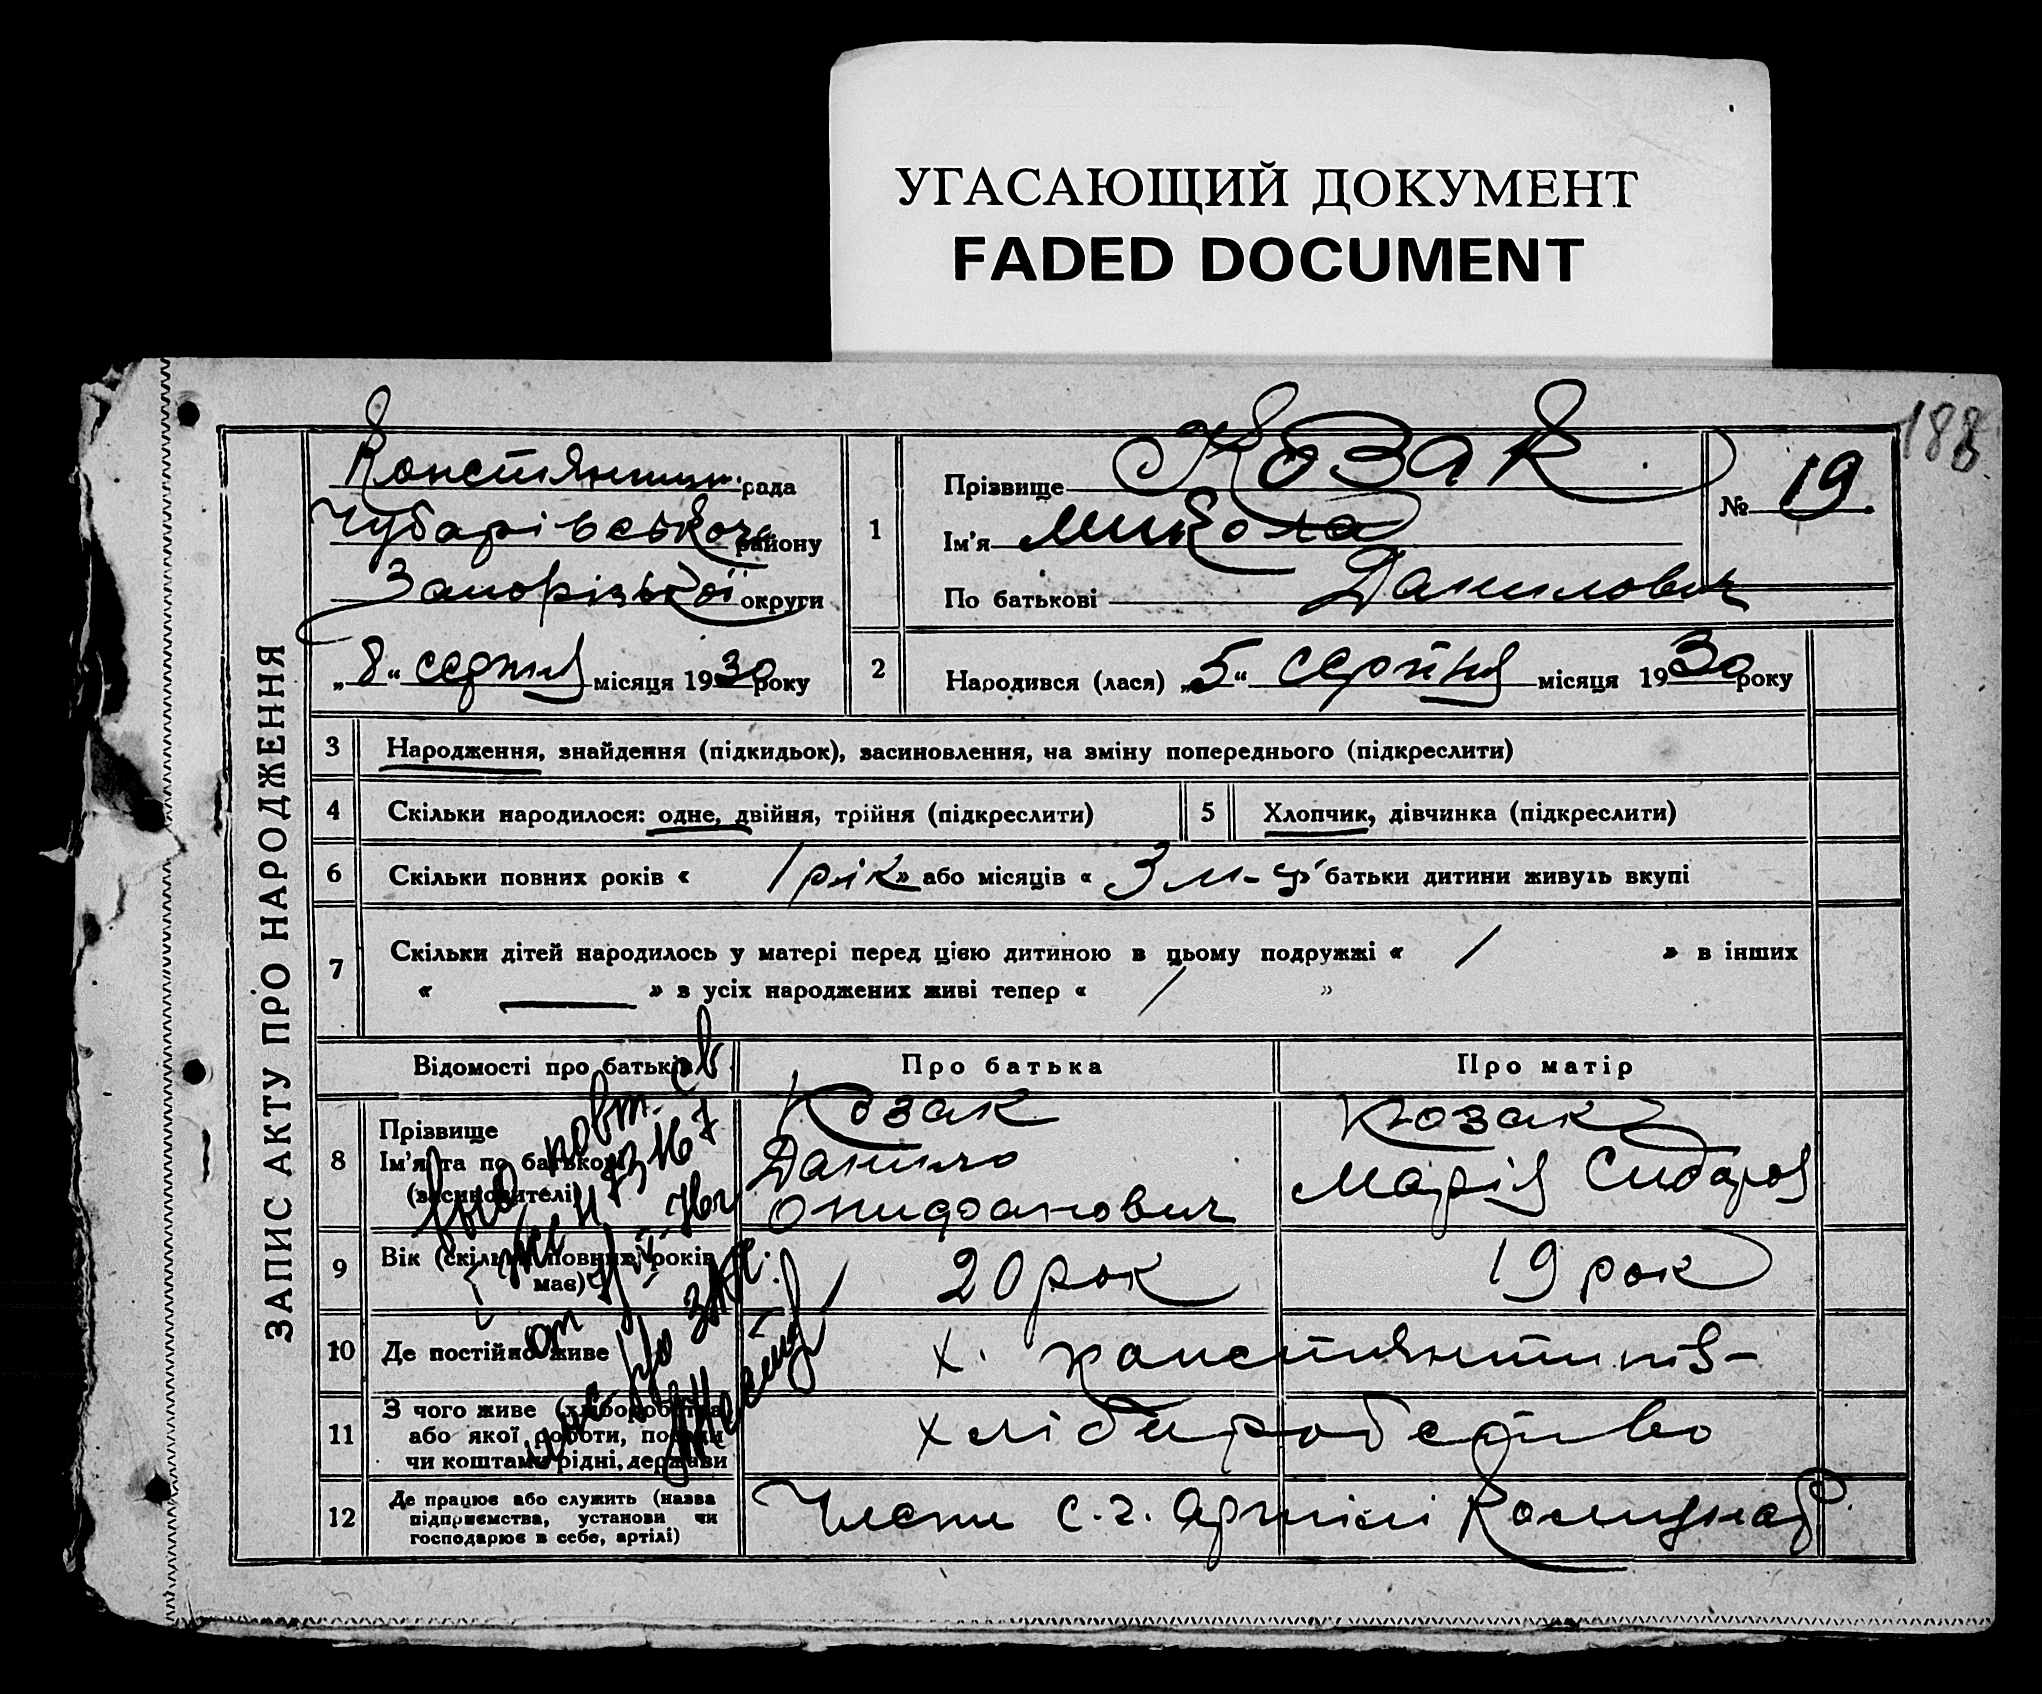 УГАСАЮЩИЙ ДОКУМЕНТ
FADED DOCUMENT
188
ЗАПИС АКТУ ПРО НАРОДЖЕННЯ
рада
Чубарівського району
Запорізької округи
„8“ серпня місяця 1930 року
1
Прізвище Козак
Ім'я Микола
По батькові Данилович
№ 19
2
Народився (лася) „5“ серпня місяця 1930 року
3 Народження, знайдення (підкидьок), засиновлення, на зміну попереднього (підкреслити)
4 Скільки народилося: одне, двійня, трійня (підкреслити)
5 Хлопчик, дівчинка (підкреслити)
6 Скільки повних років « 1 рік » або місяців « 3 м-ц » батьки дитини живуть вкупі
7 Скільки дітей народилось у матері перед цією дитиною в цьому подружжі « / » в інших
« — » в усіх народжених живі тепер « / »
Відомості про батьків
Про батька
Про матір
8
Прізвище
Ім'я та по батькові
(засиновителі)
Козак
Данило
Козак
Марія
9
Вік (скільки повних років
має)
20 рок
19 рок
10 Де постійно живе
х.
11
З чого живе (хліборобства
або якої роботи, поради
чи коштами рідні, держави
хліборобство
12
Де працює або служить (назва
підприємства, установи чи
господарює в себе, артілі)
Члени с.г. Артілі